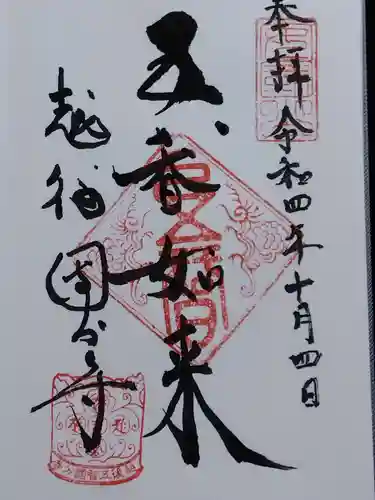 奉拝 令和四年十月四日
五智如来
越後国分寺